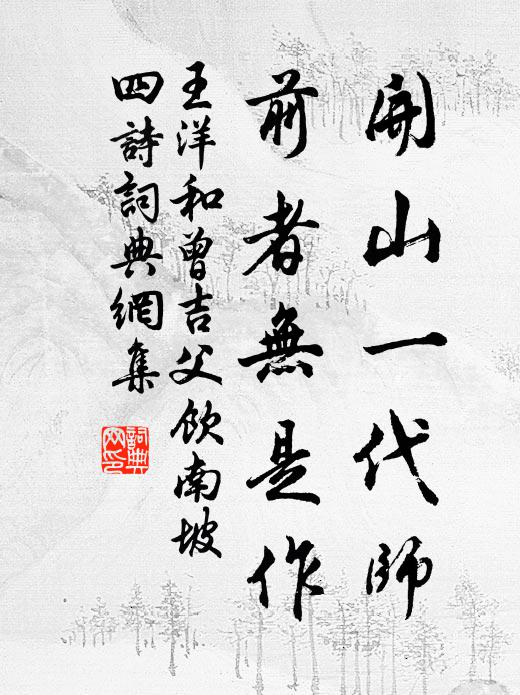 開山一代師
前者無是作
王洋和曾吉父飲南坡
四詩詞典網集
詞典
网印